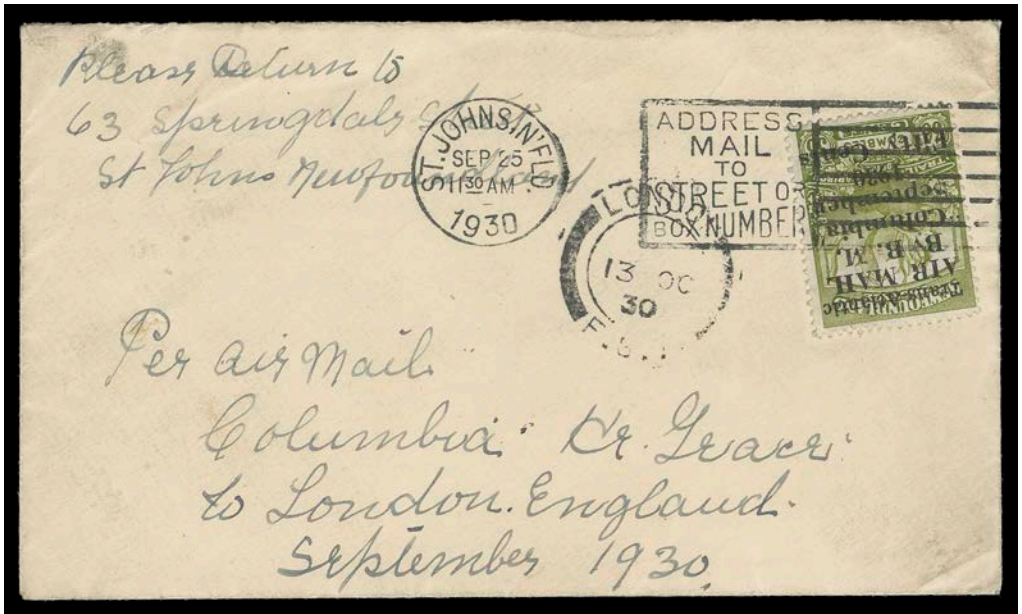 Please Return to
63 Springdale Street
St Johns Newfoundland
ST. JOHNS, N'F'LD.
SEP 25
11 30 AM
1930
ADDRESS
MAIL
TO
STREET OR
BOX NUMBER
LONDON
13 OC
30
Trans-Atlantic
AIR MAIL
By B. M.
Columbia
September
1930
Fifty Cents
Per Air Mail
Columbia Hr. Grace
to London. England.
September 1930.